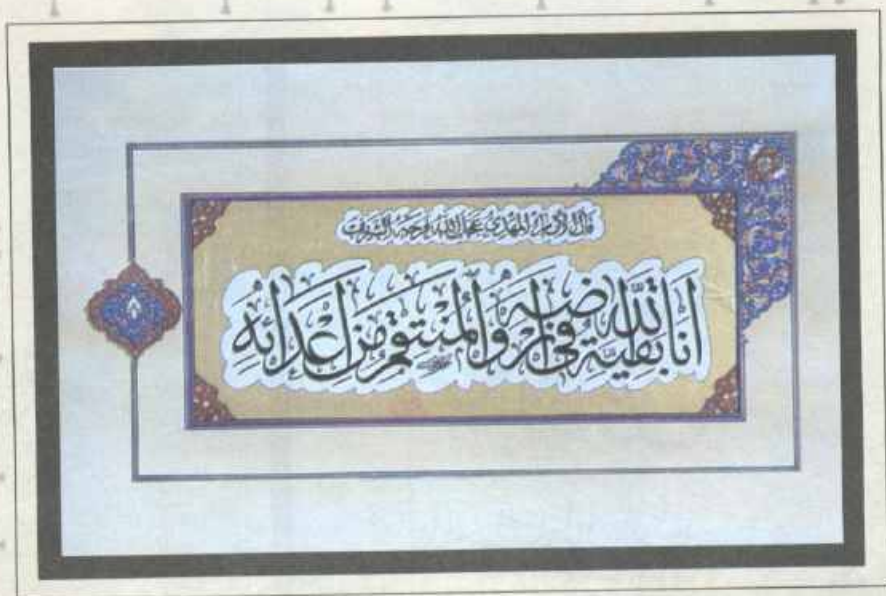 قال الإمام المهدي عجل الله فرجه الشريف
أنا بقية الله في أرضه والمنتقم من أعدائه
٨